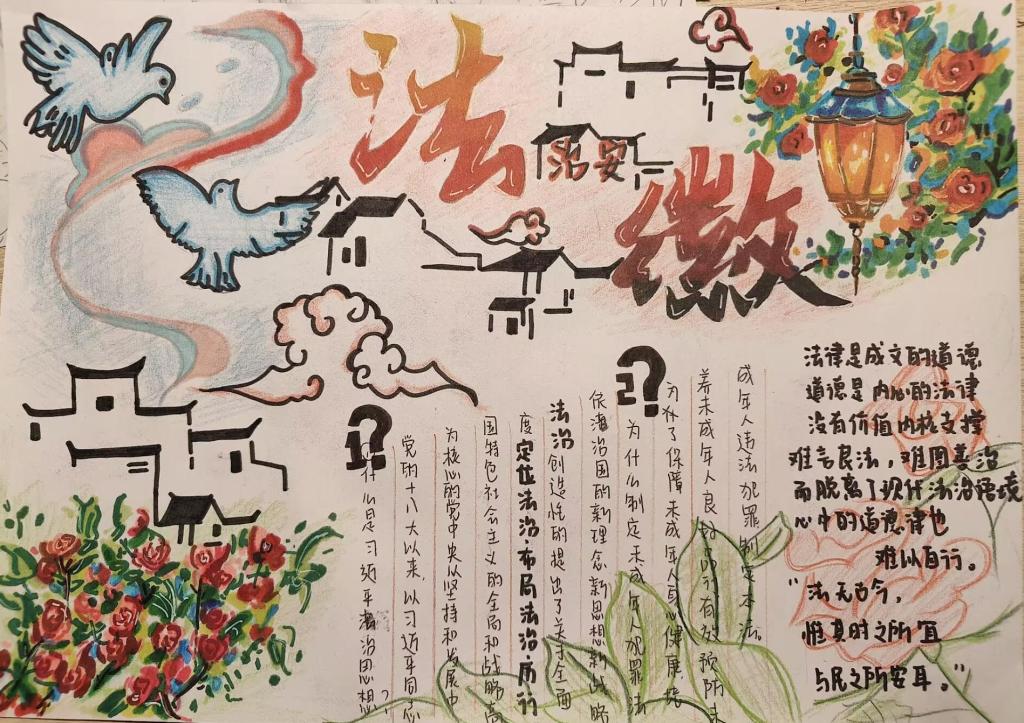 法
永安
徽
1?
什么是习近平法治思想?
党的十八大以来,以习近平同志
为核心的党中央从坚持和发展中
国特色社会主义的全局和战略高
度定位法治·布局法治·厉行
法治创造性的提出了关于全面
依法治国的新理念新思想新战略
2?
为什么制定未成年人犯罪法
为了保障未成年人身心健康,培
养未成年人良好品行有效预防未
成年人违法犯罪制定本法。
法律是成文的道德
道德是内心的法律
没有价值内核支撑
难言良法,难图善治
而脱离了现代法治语境
心中的道德律也
难以自行。
"法无古今,
惟其时之所宜
与民之所安耳。"